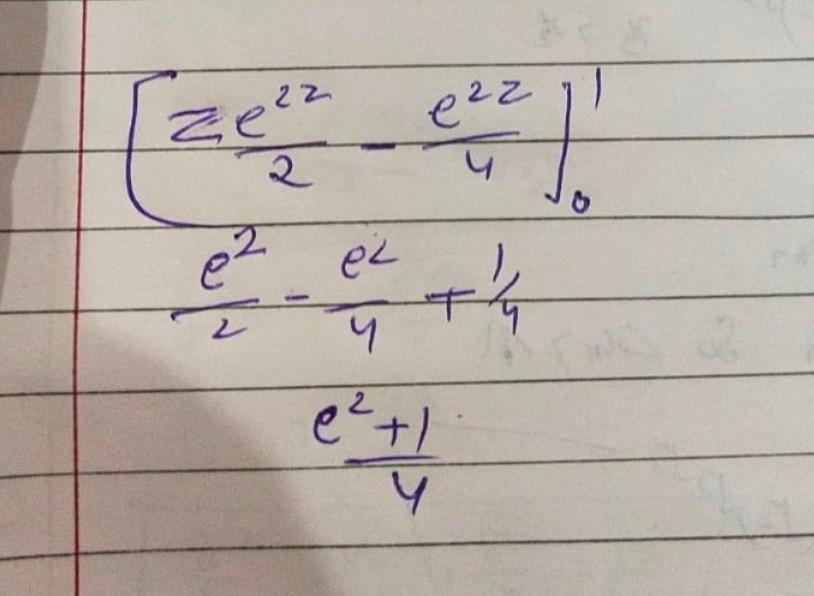 [ze^{2z}/2 - e^{2z}/4]_0^1
e^2/2 - e^2/4 + 1/4
e^2+1/4